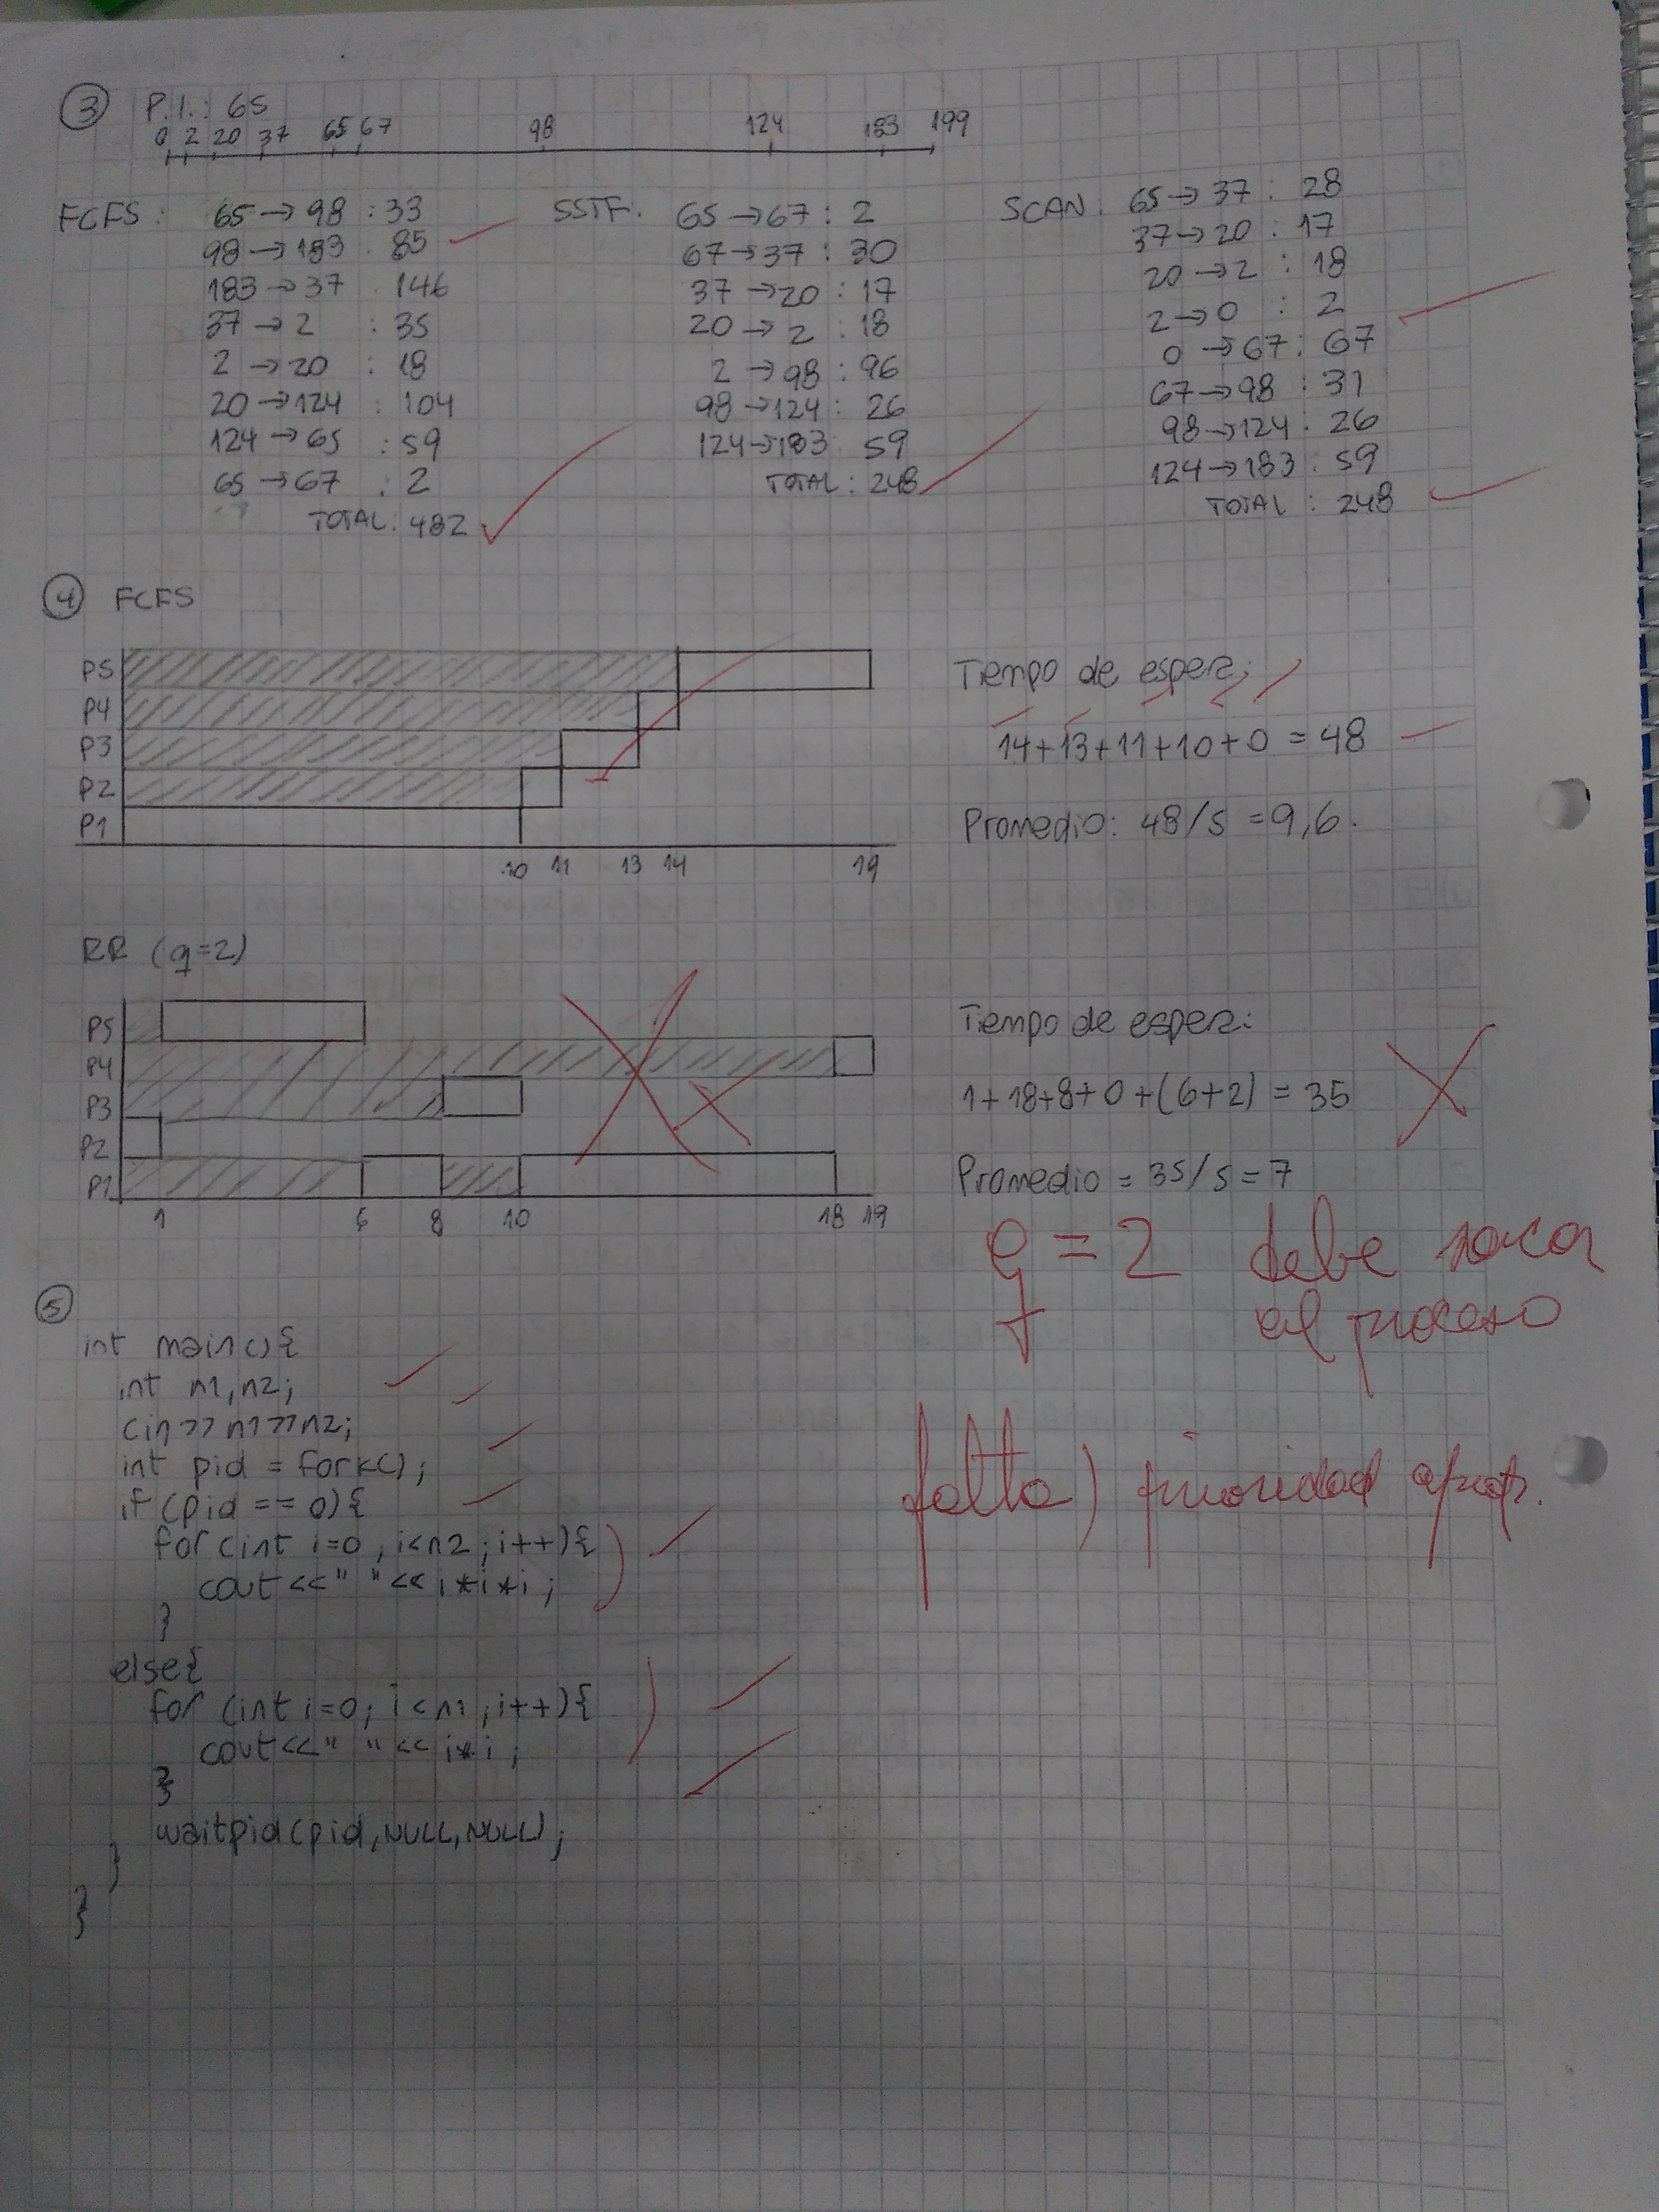 ③ P.I.: 65
0 2 20 37 65 67 98 124 183 199
FCFS:
65→98 : 33
98→183 : 85
183→37 : 146
37→2 : 35
2→20 : 18
20→124 : 104
124→65 : 59
65→67 : 2
TOTAL: 482
SSTF:
65→67 : 2
67→37 : 30
37→20 : 17
20→2 : 18
2→98 : 96
98→124 : 26
124→183 : 59
TOTAL: 248
SCAN:
65→37 : 28
37→20 : 17
20→2 : 18
2→0 : 2
0→67 : 67
67→98 : 31
98→124 : 26
124→183 : 59
TOTAL : 248
④ FCFS
P5
P4
P3
P2
P1
10 11 13 14 19
Tiempo de espera:
14+13+11+10+0 = 48
Promedio: 48/5 = 9,6.
RR (q=2)
P5
P4
P3
P2
P1
1 6 8 10 18 19
Tiempo de espera:
1+18+8+0+(6+2) = 35
Promedio = 35/5 = 7
q = 2 debe sacar
al proceso
falta) prioridad
⑤
int main(){
int n1,n2;
cin>>n1>>n2;
int pid = fork();
if(pid == 0){
for(int i=0; i<n2; i++){
cout<<" "<<i*i*i;
}
else{
for (int i=0; i<n1; i++){
cout<<" "<<i*i;
}
waitpid(pid,NULL,NULL);
}
}